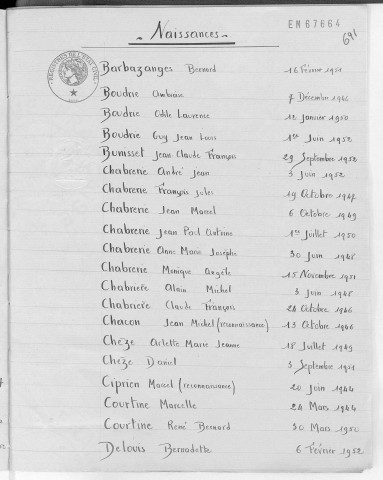 EM67664
691
Naissances
REGISTRES DE L'ETAT CIVIL
Barbazanges Bernard 16 Février 1951
Boudrie Ambroise 7 Décembre 1946
Boudrie Odile Laurence 12 janvier 1950
Boudrie Guy Jean Louis 1er Juin 1952
Bunisset Jean Claude François 29 Septembre 1952
Chabrerie André Jean 3 Juin 1952
Chabrerie François Jules 19 Octobre 1947
Chabrerie Jean Marcel 6 Octobre 1949
Chabrerie Jean Paul Antoine 1er Juillet 1950
Chabrerie Anne Marie Josèphe 30 Juin 1948
Chabrerie Monique Angèle 15 Novembre 1951
Chabrière Alain Michel 3 Juin 1948
Chabrière Claude François 26 Octobre 1946
Chacon Jean Michel (reconnaissance) 13 Octobre 1946
Chèze Arlette Marie Jeanne 18 Juillet 1949
Chèze Daniel 3 Septembre 1951
Ciprien Marcel (reconnaissance) 20 Juin 1944
Courtine Marcelle 24 Mars 1944
Courtine René Bernard 30 Mars 1950
Delouis Bernadette 6 Février 1952